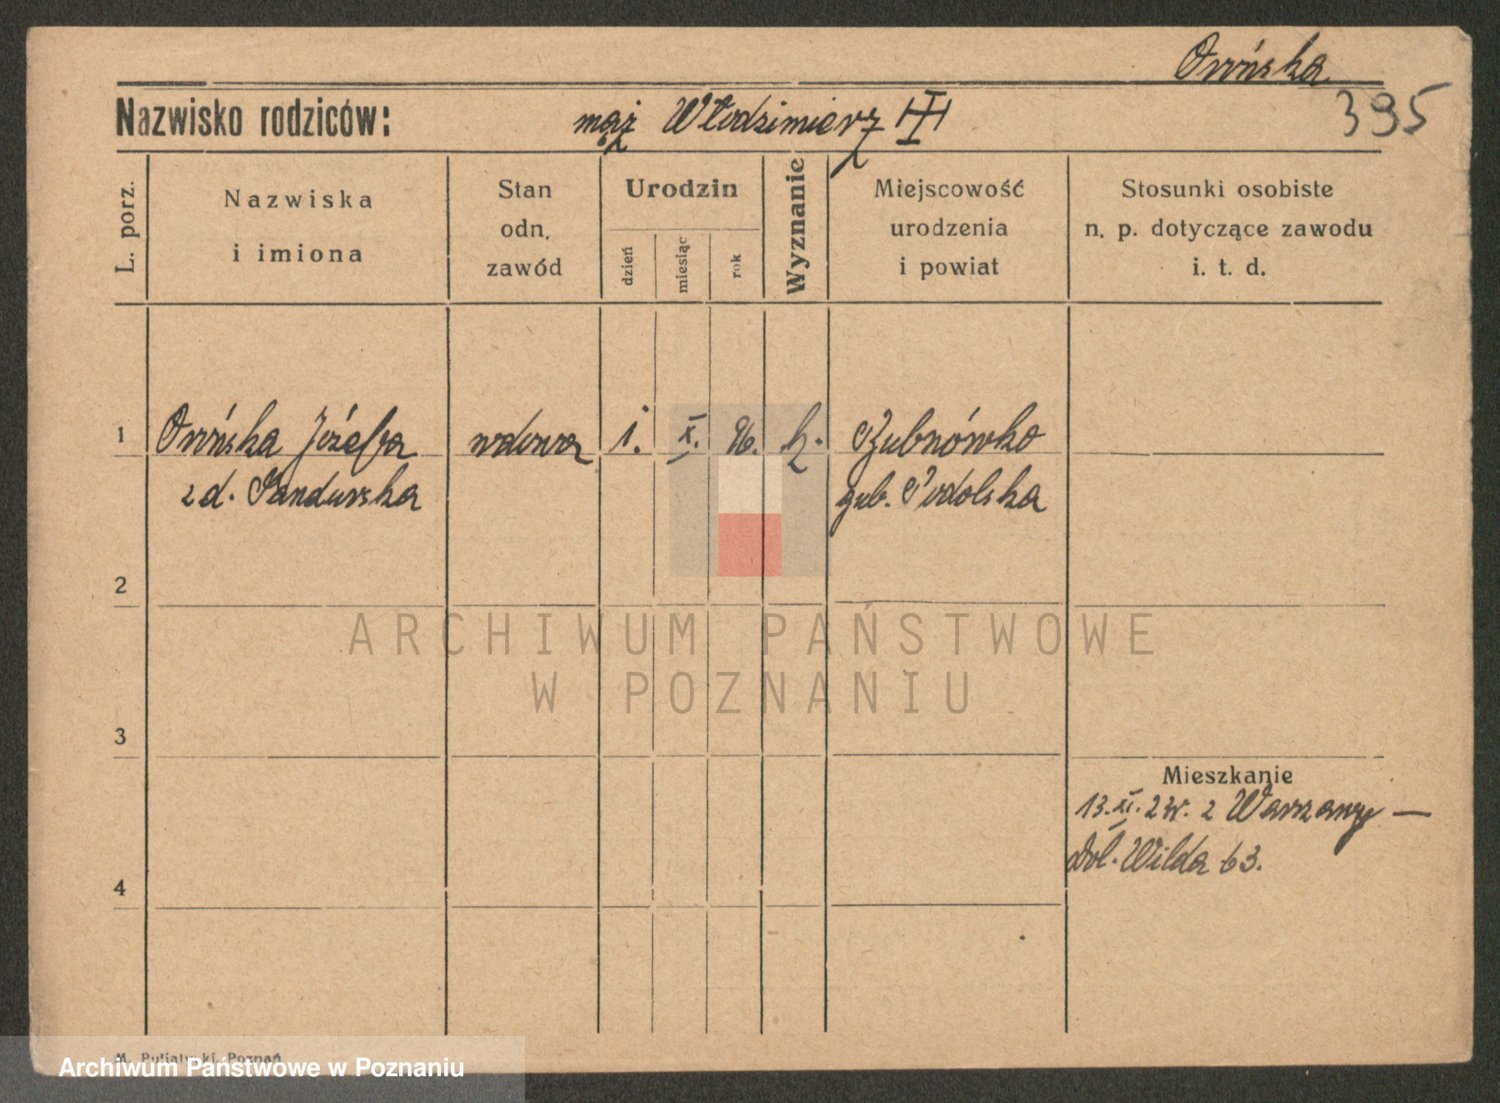 Orońska
395
Nazwisko rodziców: mąż Włodzimierz
L. porz.
Nazwiska i imiona
Stan odn. zawód
Urodzin
dzień
miesiąc
rok
Wyznanie
Miejscowość urodzenia i powiat
Stosunki osobiste n. p. dotyczące zawodu i. t. d.
1 Orońska Józefa wdowa 1. X. 96. k.
z d. gub. Podolska
2
ARCHIWUM PAŃSTWOWE
W POZNANIU
3
Mieszkanie
13. XI. 23r. z Warszawy —
Dol. Wilda 63.
4
M. Putiatycki, Poznań
Archiwum Państwowe w Poznaniu